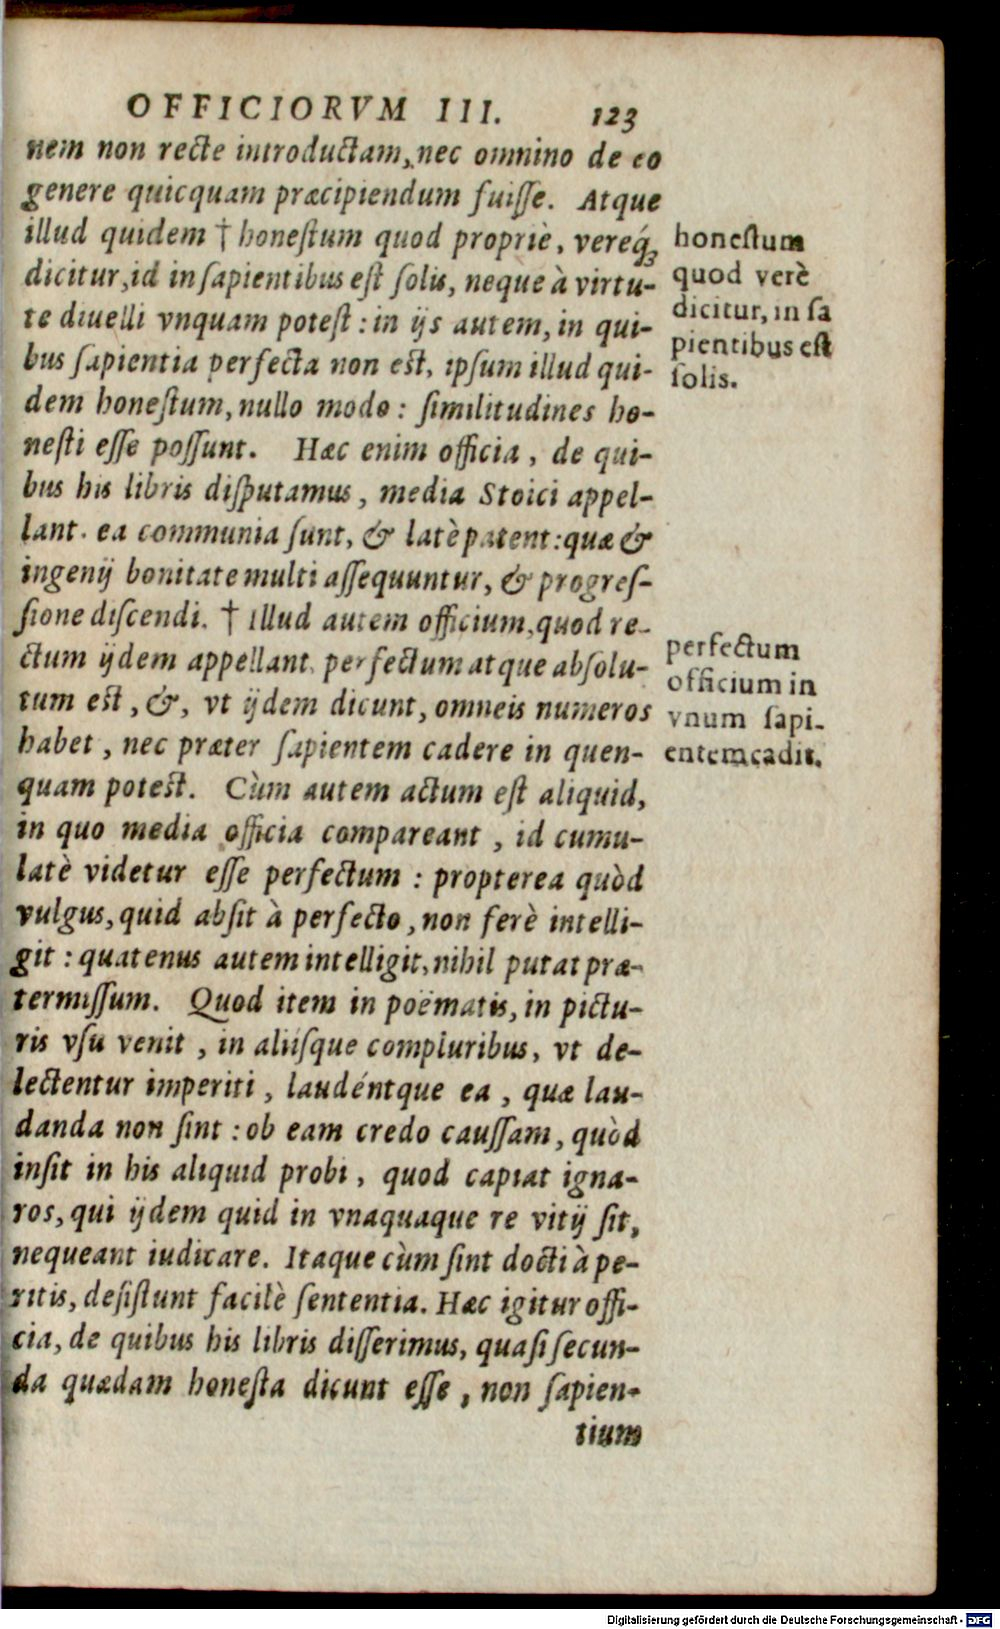 OFFICIORVM III. 123
nem non recte introductam, nec omnino de eo
genere quicquam præcipiendum fuisse. Atque
illud quidem † honestum quod propriè, vereq́ꝫ
dicitur, id in sapientibus est solis, neque à virtu-
te diuelli vnquam potest : in ijs autem, in qui-
bus sapientia perfecta non est, ipsum illud qui-
dem honestum, nullo modo : similitudines ho-
nesti esse possunt. Hæc enim officia, de qui-
bus his libris disputamus, media Stoici appel-
lant. ea communia sunt, & latè patent: quæ &
ingenij bonitate multi assequuntur, & progres-
sione discendi. † Illud autem officium, quod re-
ctum ijdem appellant, perfectum atque absolu-
tum est, &, vt ijdem dicunt, omneis numeros
habet, nec præter sapientem cadere in quen-
quam potest. Cùm autem actum est aliquid,
in quo media officia compareant, id cumu-
latè videtur esse perfectum : propterea quòd
vulgus, quid absit à perfecto, non ferè intelli-
git : quatenus autem intelligit, nihil putat præ-
termissum. Quod item in poëmatis, in pictu-
ris vsu venit, in aliisque compluribus, vt de-
lectentur imperiti, laudéntque ea, quæ lau-
danda non sint : ob eam credo caussam, quòd
insit in his aliquid probi, quod capiat igna-
ros, qui ijdem quid in vnaquaque re vitij sit,
nequeant iudicare. Itaque cùm sint docti à pe-
ritis, desistunt facilè sententia. Hæc igitur offi-
cia, de quibus his libris disserimus, quasi secun-
da quædam honesta dicunt esse, non sapien-
tium
honestum
quod verè
dicitur, in sa
pientibus est
solis.
perfectum
officium in
vnum sapi-
entem cadit.
Digitalisierung gefördert durch die Deutsche Forschungsgemeinschaft - DFG